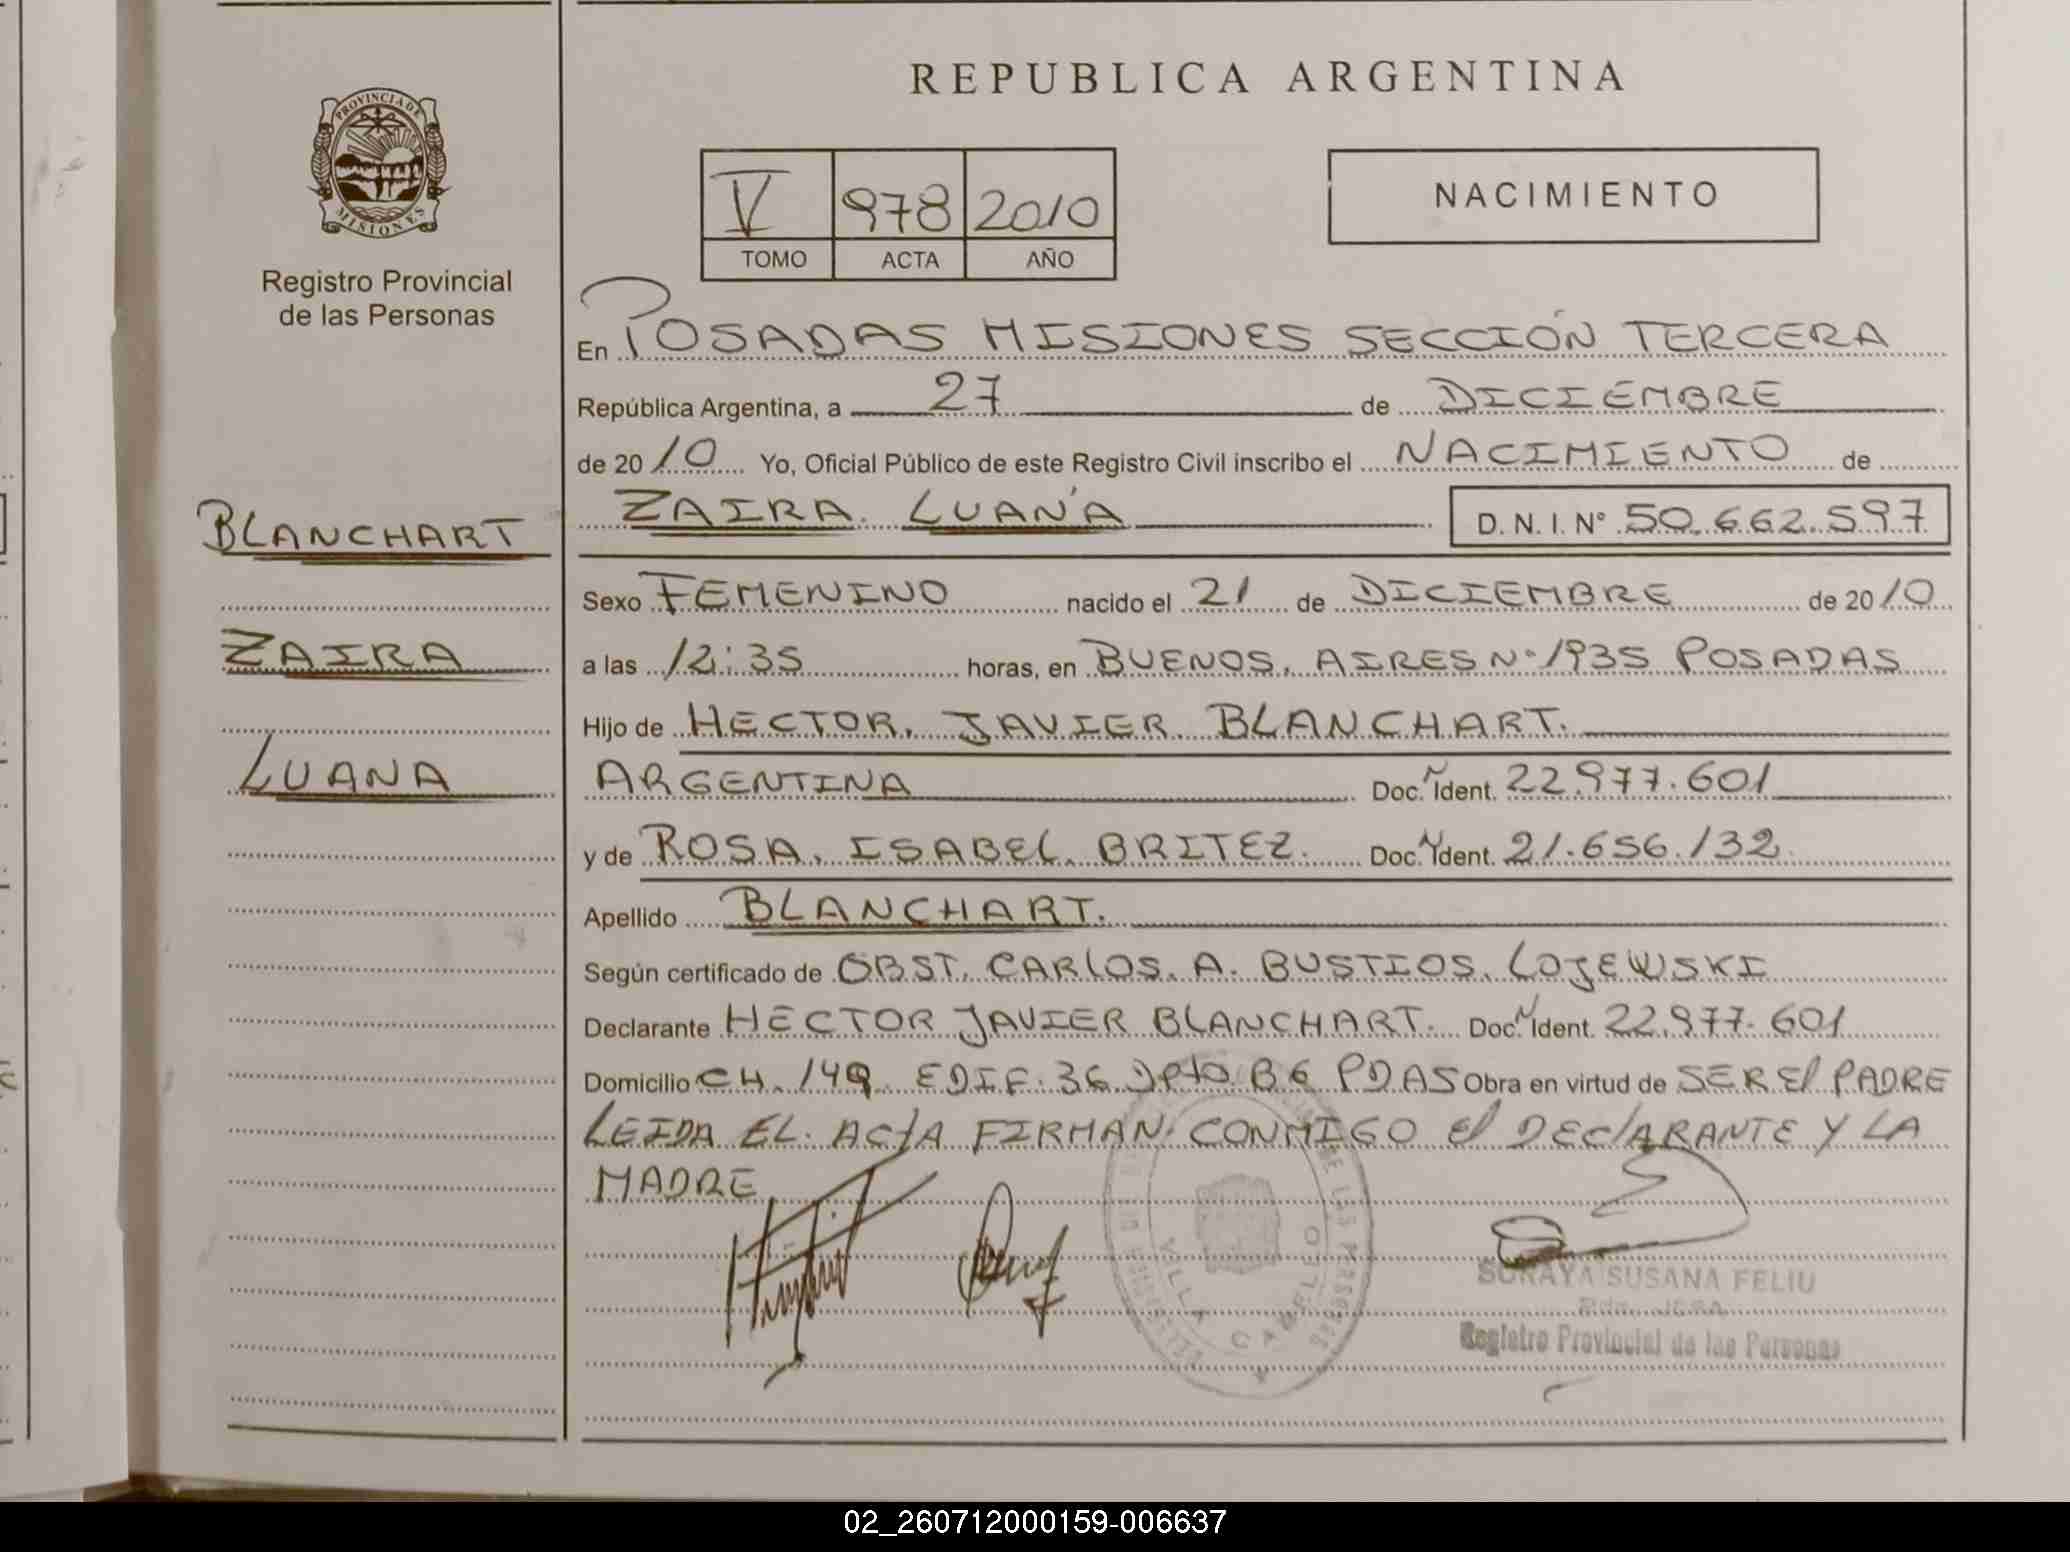 REPUBLICA ARGENTINA
PROVINCIA DE MISIONES
Registro Provincial
de las Personas
V 978 2010
TOMO ACTA AÑO
NACIMIENTO
En POSADAS MISIONES SECCIÓN TERCERA
República Argentina, a 27 de DICIEMBRE
de 2010 Yo, Oficial Público de este Registro Civil inscribo el NACIMIENTO de
ZAIRA LUANA D.N.I. Nº 50.662.597
BLANCHART
ZAIRA
LUANA
Sexo FEMENINO nacido el 21 de DICIEMBRE de 2010
a las 12:35 horas, en BUENOS AIRES Nº 1935 POSADAS
Hijo de HECTOR JAVIER BLANCHART.
ARGENTINA Doc. Ident. 22.977.601
y de ROSA ISABEL BRITEZ. Doc. Ident. 21.656.132
Apellido BLANCHART.
Según certificado de OBST. CARLOS A. BUSTIOS LOJEWSKI
Declarante HECTOR JAVIER BLANCHART. Doc. Ident. 22.977.601
Domicilio CH. 149 EDIF. 36 DPTO B6 PDAS Obra en virtud de SER El PADRE
LEIDA EL ACTA FIRMAN CONMIGO El DEClARANTE Y LA
MADRE
VILLA CABELLO
SORAYA SUSANA FELIU
Registro Provincial de las Personas
02_260712000159-006637